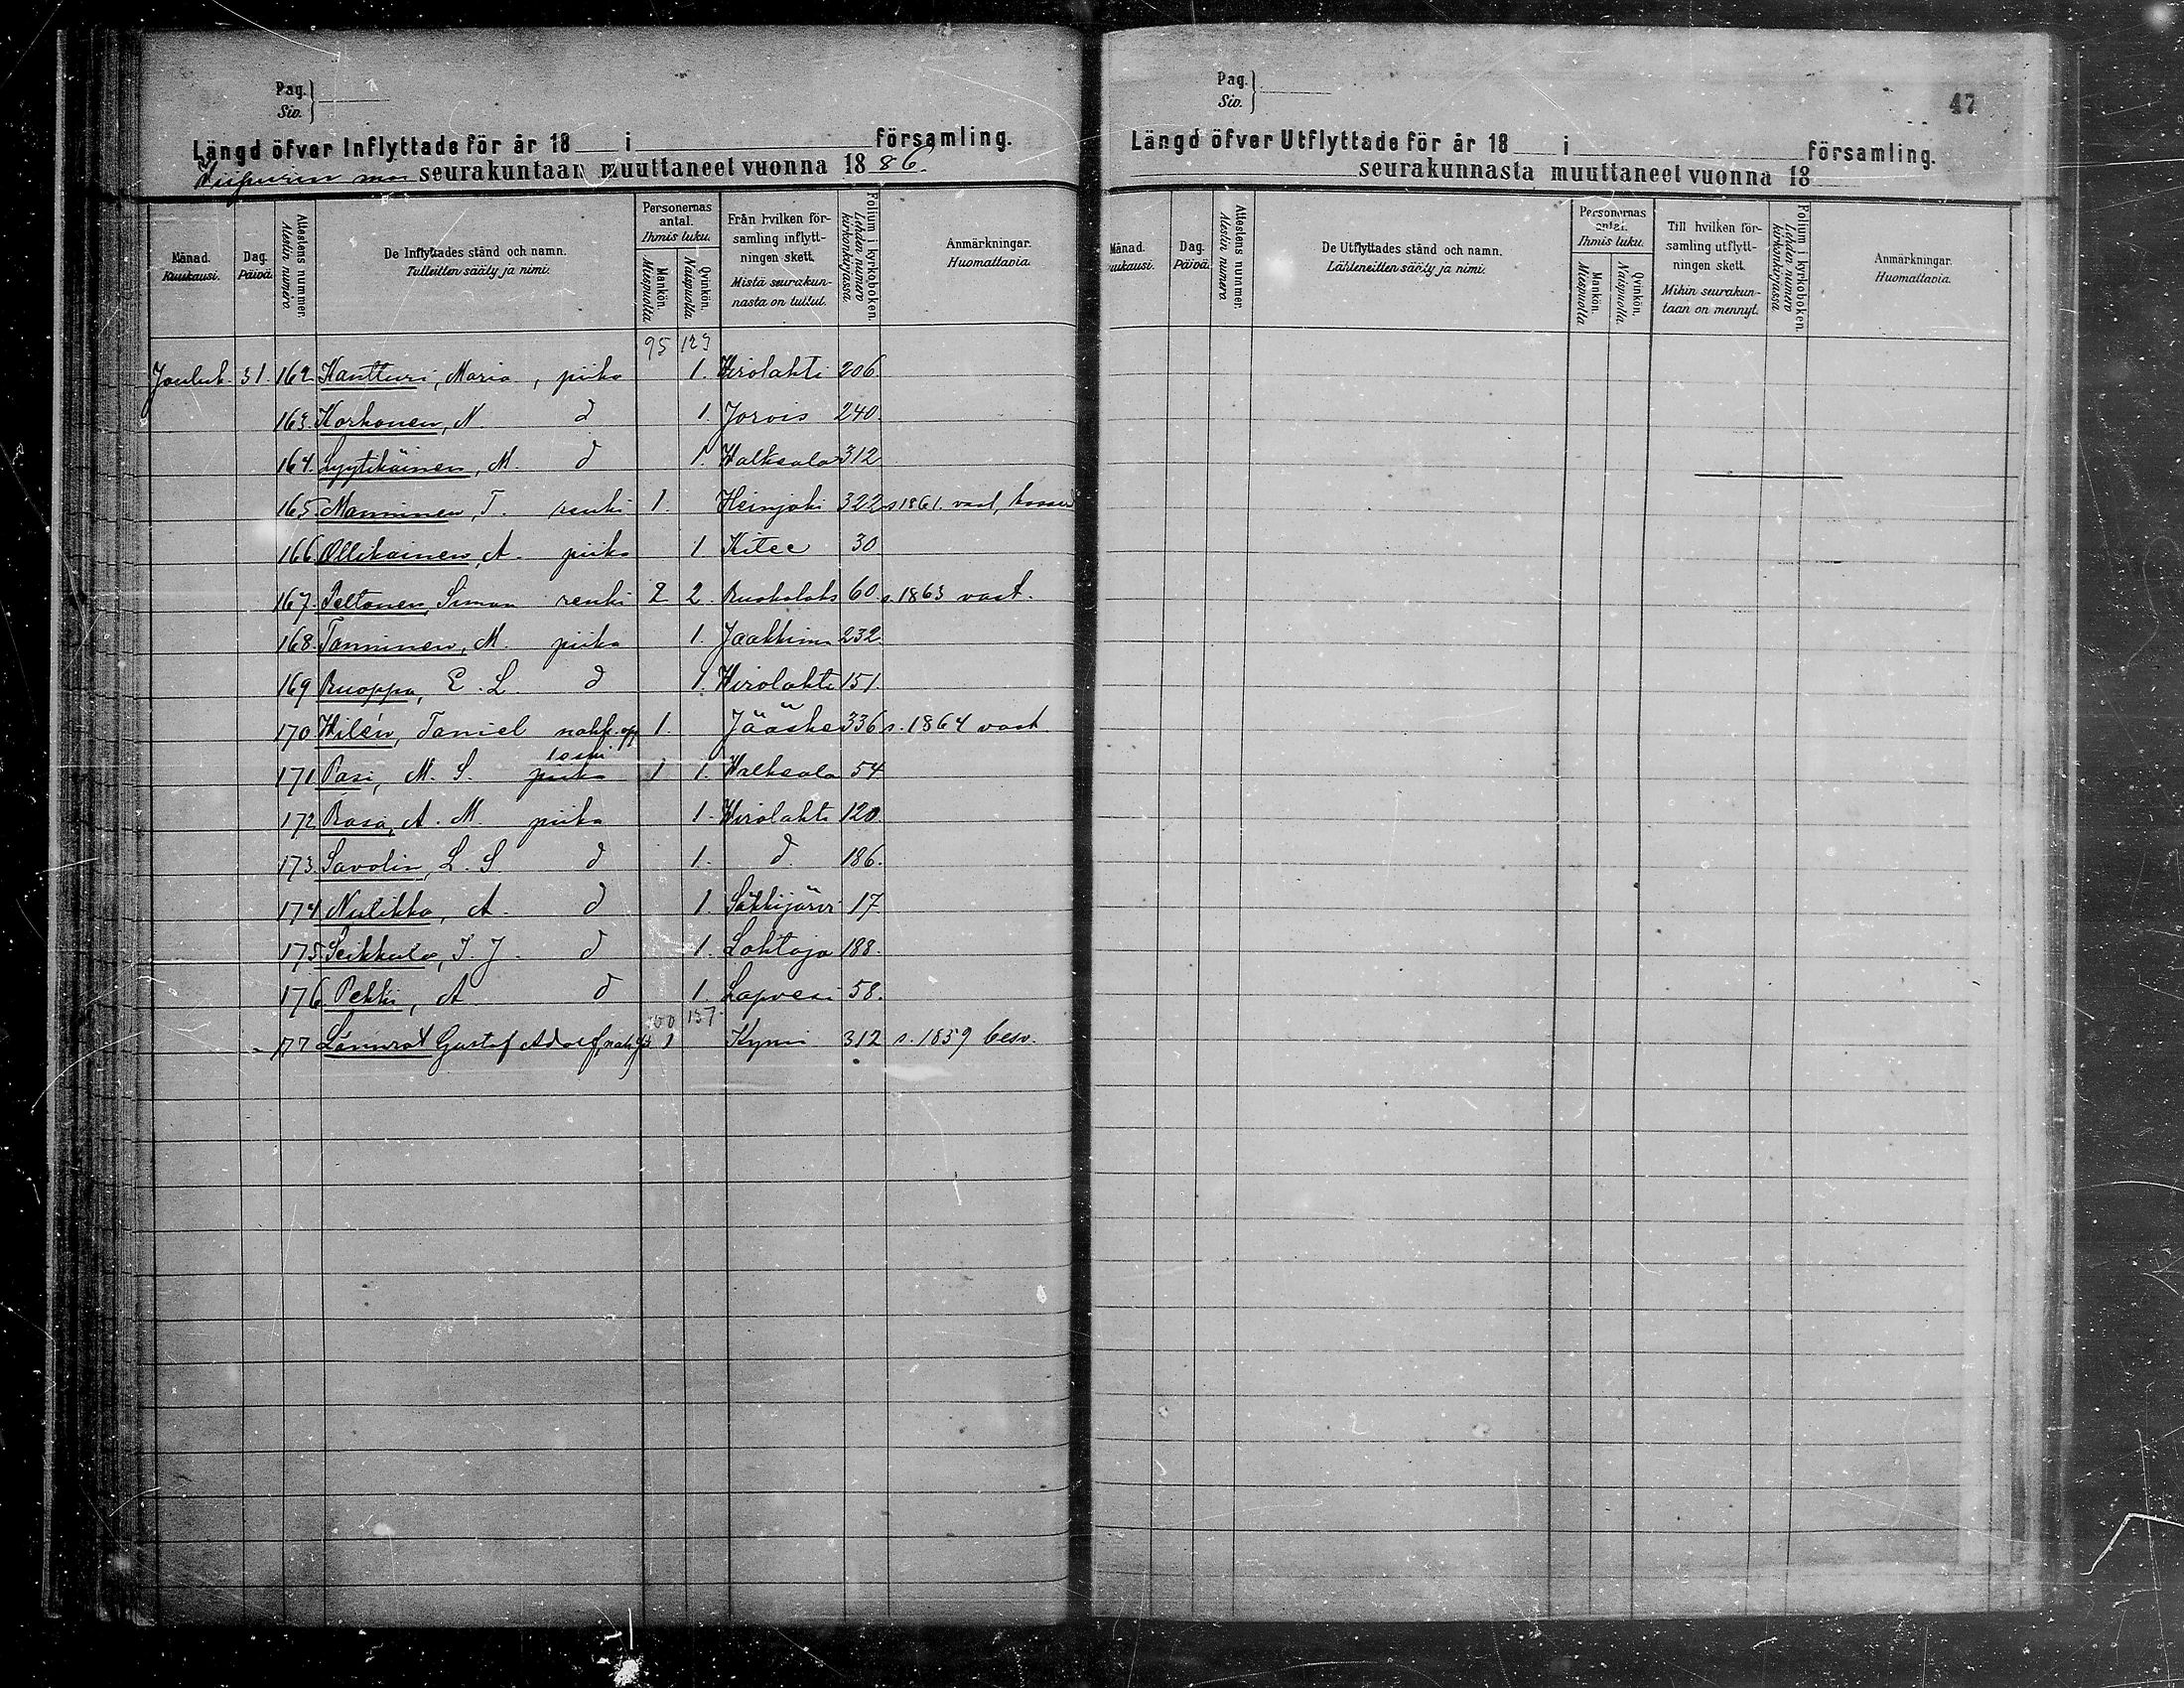 Pag.
Siv.
Längd öfver Inflyttade för år 18 i församling.
Wiipurin maa seurakuntaan muuttaneet vuonna 1886.
Månad. Kuukausi.
Dag. Päivä.
Attestens nummer. Atestin numero.
De Inflyttades stånd och namn. Tulleitten sääty ja nimi.
Personernas antal. Ihmis luku.
Mankön. Miespuolta
Qvinkön. Naispuolta
Från hvilken församling inflyttningen skett. Mistä seurakunnasta on tullut.
Folium i kyrkoboken. Lehden numero kirkonkirjassa
Anmärkningar. Huomattavia.
95 123
Jouluk. 31 162 Kantturi, Maria, piika 1. Wirolahti 206
163. Korhonen, N. d 1. Jorois 240.
164. Lyytikäinen, M. d 1. Walkeala 312
165. Manninen, T. renki 1. Heinjoki 322 s 1861. vast,
166 Ollikainen, A. piika 1 Kitee 30
167. Peltonen, Simon renki 2 2. Ruokolaks 60 s. 1863 vast.
168. Tanninen, M. piika 1. Jaakkima 232.
169 Ruoppa, E. L. d 1. Wirolahti 151.
170 Hilén, Taniel nahk. opp 1. Jääske 336 s. 1864 vast
leski
171 Pasi, M. S. piika 1 1. Walkeala 54
172 Rasa, A. M. piika 1. Wirolahti 120
173. Savolin, L. S. d 1. d. 186.
174 Nulikka, A. d 1. Säkkijärvi 17
175 Seikkula, I. J. d 1. Lohtaja 188.
176 Pekki, A d 1. Lapvesi 58.
100 137
177 Lönnrot Gustaf Adolf, 1 Kymi 312 s. 1859 besv.
Pag.
Siv.
47
Längd öfver Utflyttade för år 18 i församling.
seurakunnasta muuttaneet vuonna 18
Månad. Kuukausi.
Dag. Päivä.
Attestens nummer. Atestin numero.
De Utflyttades stånd och namn. Lähteneitten sääty ja nimi.
Personernas antal. Ihmis luku.
Mankön. Miespuolta
Qvinkön. Naispuolta
Till hvilken församling utflyttningen skett. Mihin seurakuntaan on mennyt.
Folium i kyrkoboken. Lehden numero kirkonkirjassa
Anmärkningar. Huomattavia.